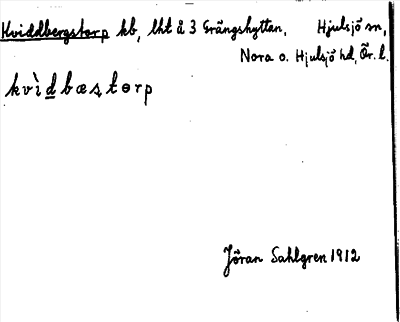 Kviddbergstorp kb, lht å 3 Grängshyttan, Hjulsjö sn,
Nora o. Hjulsjö hd, Ör. l.
kvìdbæstorp
Jöran Sahlgren 1912